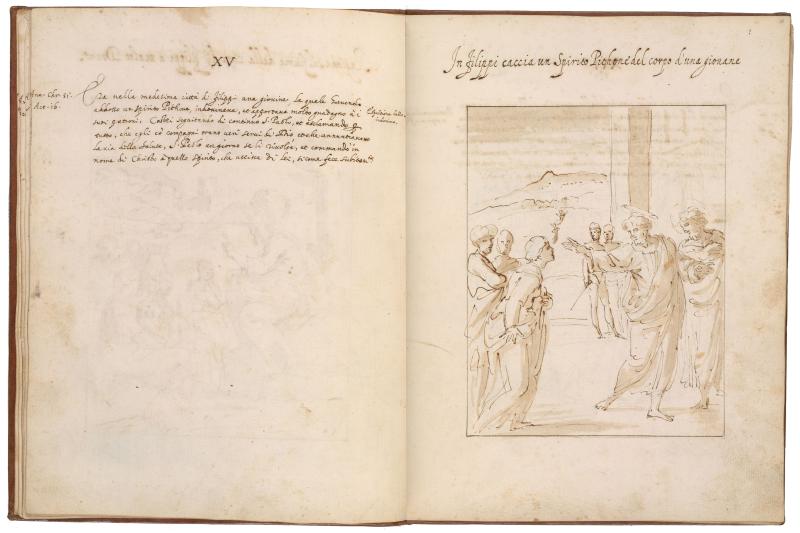 XV
Ann. Chr. 51.
Act. 16.
Era nella medesima città di Filippi una giovine la quale havendo
adosso un spirito Pithone, indovinava, et apportava molto guadagno a i
suoi patroni. Costei seguitando di continuo S. Paolo, et esclamando
tutto, che egli et compagni erano veri servi di Dio et che annuntiavano
la via della salute, S. Paolo un giorno se li rivolse, et commandò in
nome di Christo a quello spirito, che uscisse di lei, si come fece subitamte.
In Filippi caccia un Spirito Pithone del corpo d'una giovane